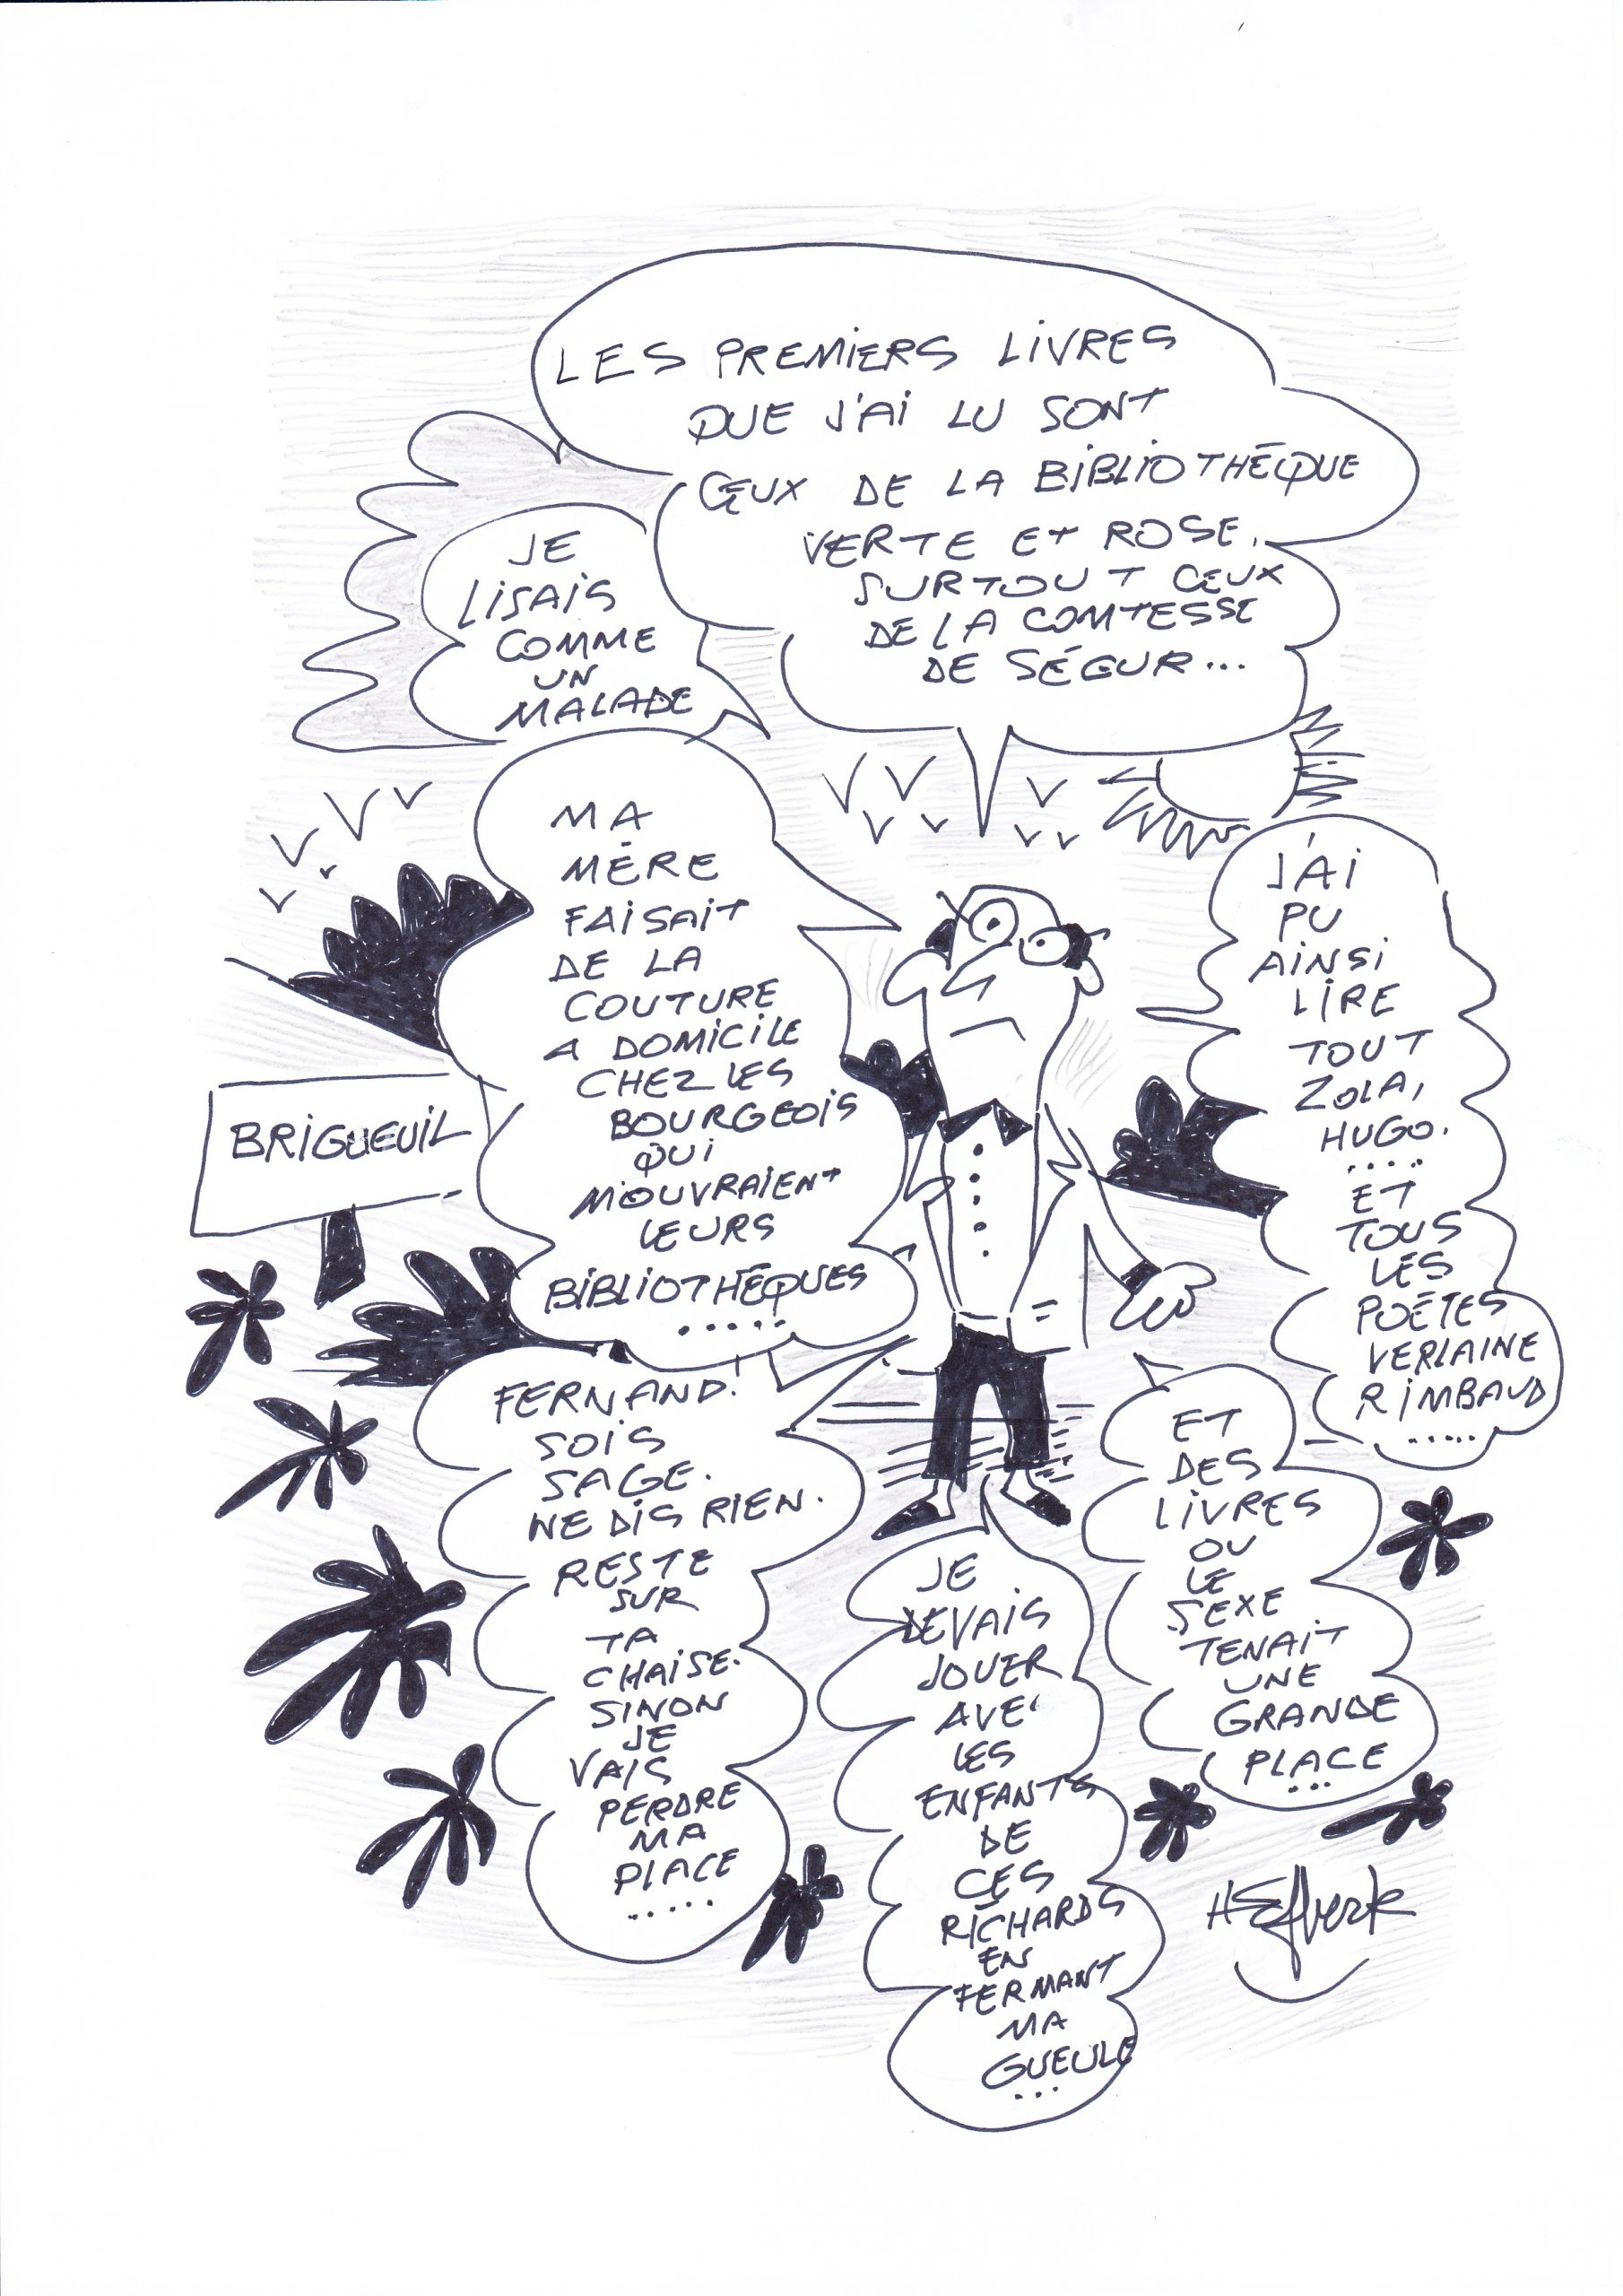 LES PREMIERS LIVRES
QUE J'AI LU SONT
CEUX DE LA BIBLIOTHÈQUE
VERTE ET ROSE.
SURTOUT CEUX
DE LA COMTESSE
DE SÉGUR...
JE
LISAIS
COMME
UN
MALADE
MA
MÈRE
FAISAIT
DE LA
COUTURE
A DOMICILE
CHEZ LES
BOURGEOIS
QUI
M'OUVRAIENT
LEURS
BIBLIOTHÈQUES
.....
J'AI
PU
AINSI
LIRE
TOUT
ZOLA,
HUGO.
.....
ET
TOUS
LES
POÉTES
VERLAINE
RIMBAUD
.....
BRIGUEUIL
FERNAND!
SOIS
SAGE.
NE DIS RIEN.
RESTE
SUR
TA
CHAISE.
SINON
JE
VAIS
PERDRE
MA
PLACE
.....
JE
DEVAIS
JOUER
AVE'
LES
ENFANTS
DE
CES
RICHARDS
EN
FERMANT
MA
GUEULE
...
ET
DES
LIVRES
OU
LE
SEXE
TENAIT
UNE
GRANDE
PLACE
...